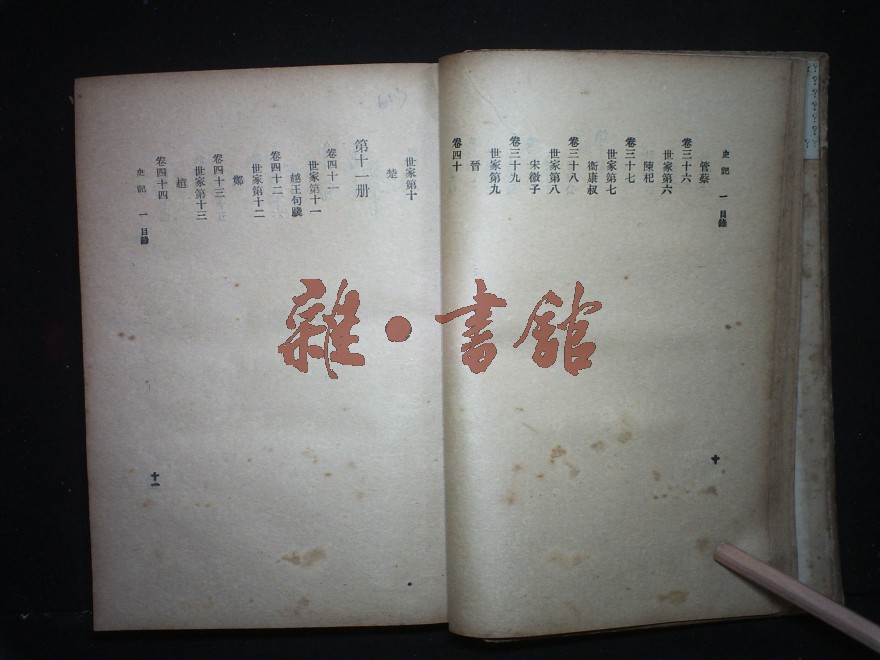 史記 一 目錄
管蔡
卷三十六
世家第六
陳杞
卷三十七
世家第七
衛康叔
卷三十八
世家第八
宋微子
卷三十九
世家第九
晉
卷四十
十
世家第十
楚
第十一册
卷四十一
世家第十一
越王句踐
卷四十二
世家第十二
鄭
卷四十三
世家第十三
趙
卷四十四
史記 一 目錄
十一
雜·書館